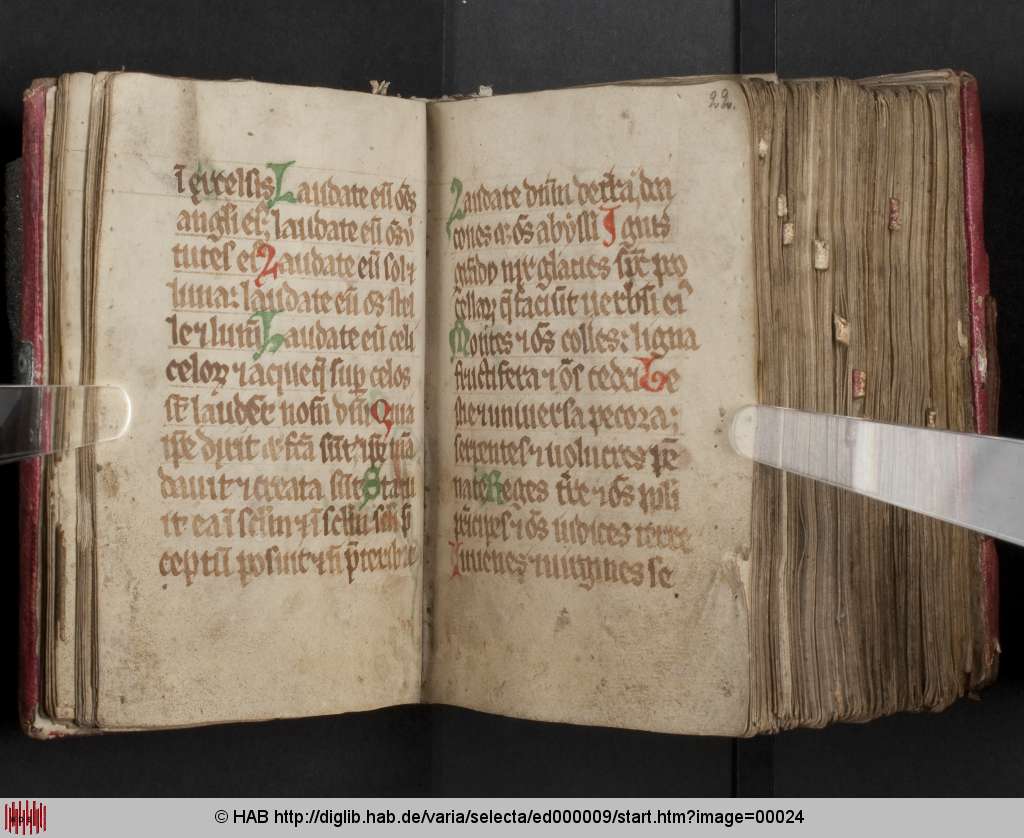 ī excelsis Laudate eū oēs
angl̄i eiꝰ laudate eū oēs v̄
tutes eiꝰ Laudate eū sol ⁊
luna: laudate eū oēs stel
le ⁊ lumē Laudate eū celi
celoꝝ ⁊ aque q̄ suꝑ celos
st̄ laudēt nomē dn̄i Quia
ip̄e dixit ⁊ fc̄a sūt: ip̄e mā
davit ⁊ creata sūt Statu
it ea ī sclm̄ ⁊ ī sclm̄ scli p̄
ceptū posuit ⁊ nō p̄teribit
22.
Laudate dn̄m de t̄ra, dra
cones ⁊ oēs abyssi Ignis
gͣndo nix glacies sp̄c pro
cellaꝝ q̄ faciūt verbū eiꝰ
Mōtes ⁊ oēs colles: ligna
fructifera ⁊ oēs cedri Be
stie ⁊ universa pecora:
serpentes ⁊ volucres pē
nate Reges t̄re ⁊ oēs ppli
p̄ncipes ⁊ oēs iudices terre
Iuvenes ⁊ virgines se
© HAB http://diglib.hab.de/varia/selecta/ed000009/start.htm?image=00024